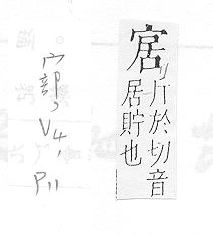 斤於切音
居貯也
宀部, V4, P11